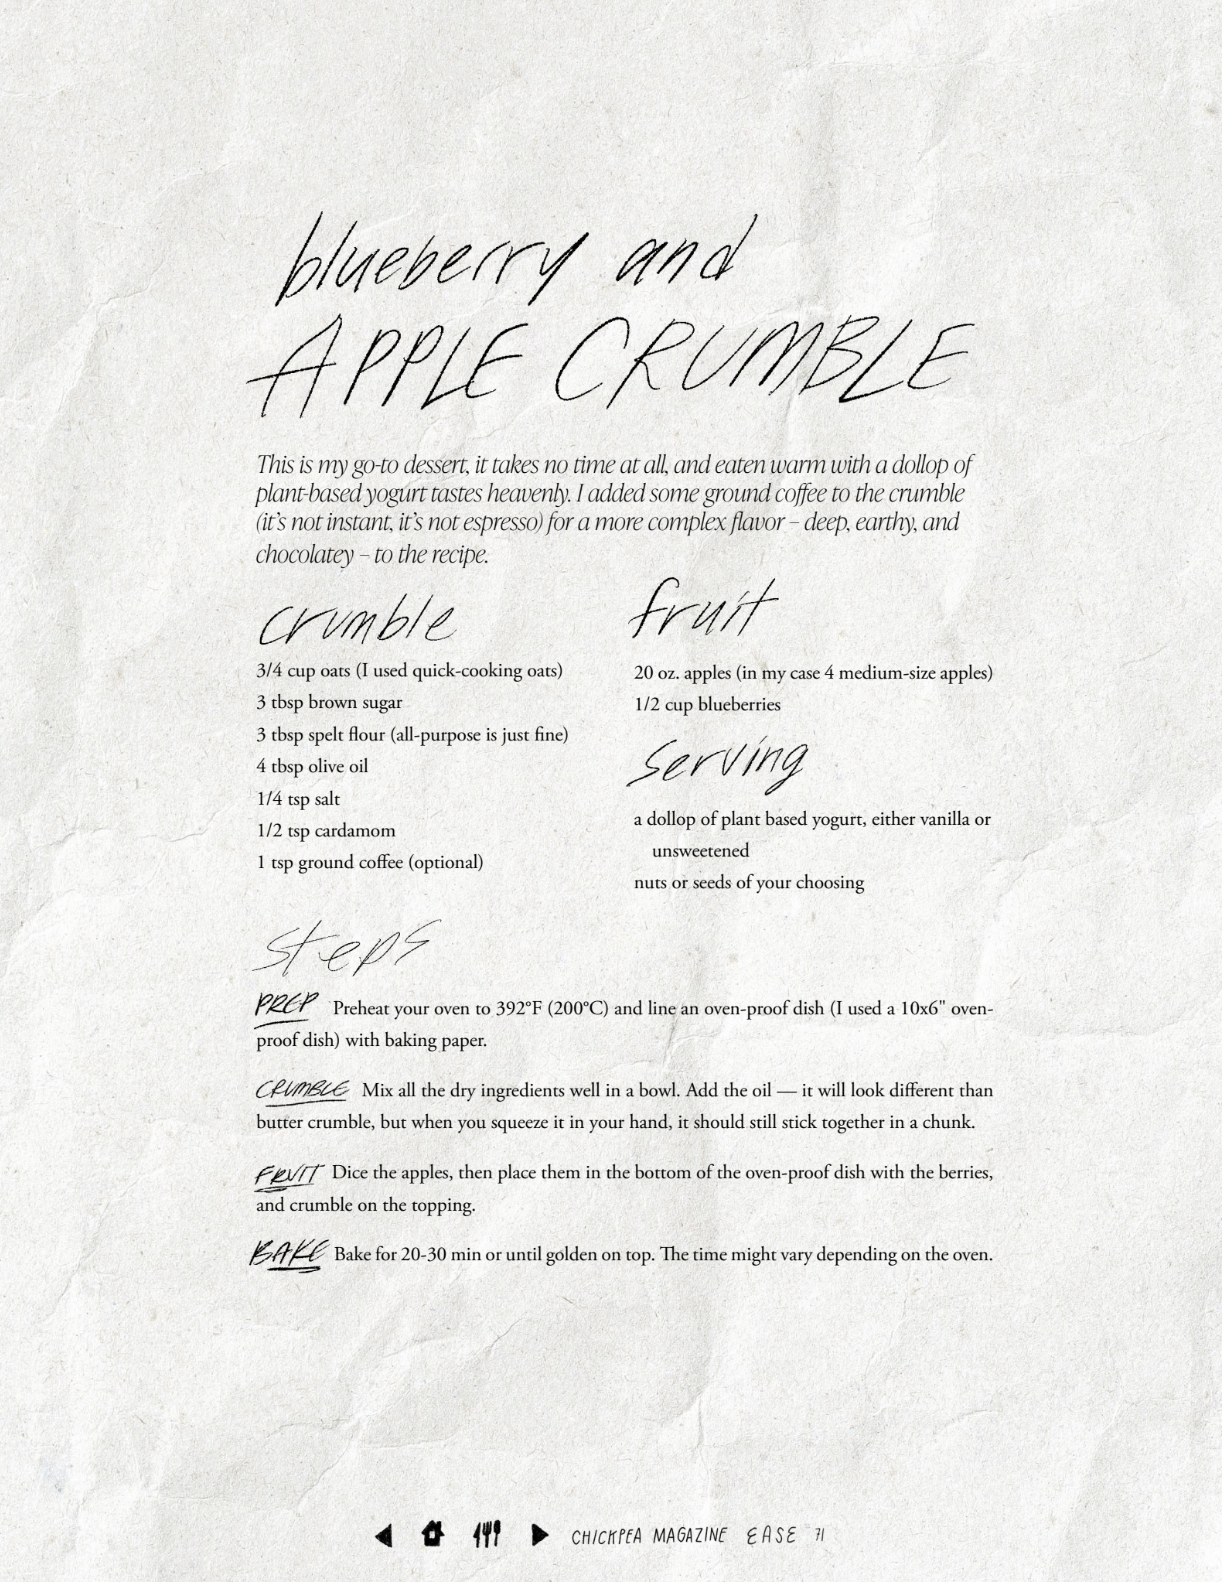 blueberry and
APPLE CRUMBLE
This is my go-to dessert, it takes no time at all, and eaten warm with a dollop of
plant-based yogurt tastes heavenly. I added some ground coffee to the crumble
(it's not instant, it's not espresso) for a more complex flavor – deep, earthy, and
chocolatey – to the recipe.
crumble
3/4 cup oats (I used quick-cooking oats)
3 tbsp brown sugar
3 tbsp spelt flour (all-purpose is just fine)
4 tbsp olive oil
1/4 tsp salt
1/2 tsp cardamom
1 tsp ground coffee (optional)
fruit
20 oz. apples (in my case 4 medium-size apples)
1/2 cup blueberries
serving
a dollop of plant based yogurt, either vanilla or
unsweetened
nuts or seeds of your choosing
steps
PREP Preheat your oven to 392°F (200°C) and line an oven-proof dish (I used a 10x6" oven-
proof dish) with baking paper.
CRUMBLE Mix all the dry ingredients well in a bowl. Add the oil — it will look different than
butter crumble, but when you squeeze it in your hand, it should still stick together in a chunk.
FRUIT Dice the apples, then place them in the bottom of the oven-proof dish with the berries,
and crumble on the topping.
BAKE Bake for 20-30 min or until golden on top. The time might vary depending on the oven.
CHICKPEA MAGAZINE EASE 71